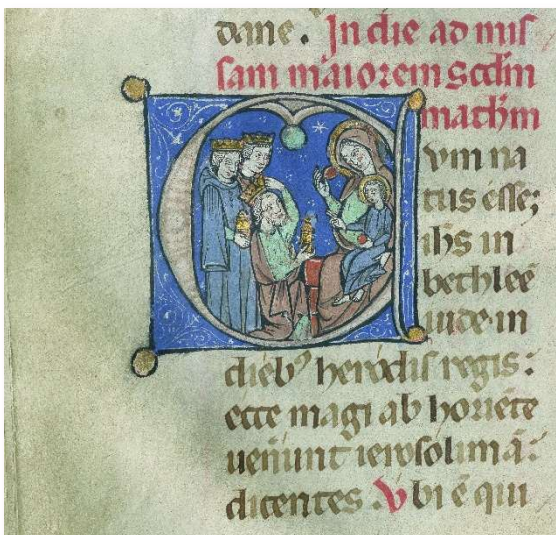 dane. In die ad mis
sam maiorem Scdm
mathm
Vm na
tus esse;
ihs in
bethleē
iude in
dieb' herodis regis:
ecce magi ab horiēte
uenunt ierosolimā:
dicentes. Vbi ē qui